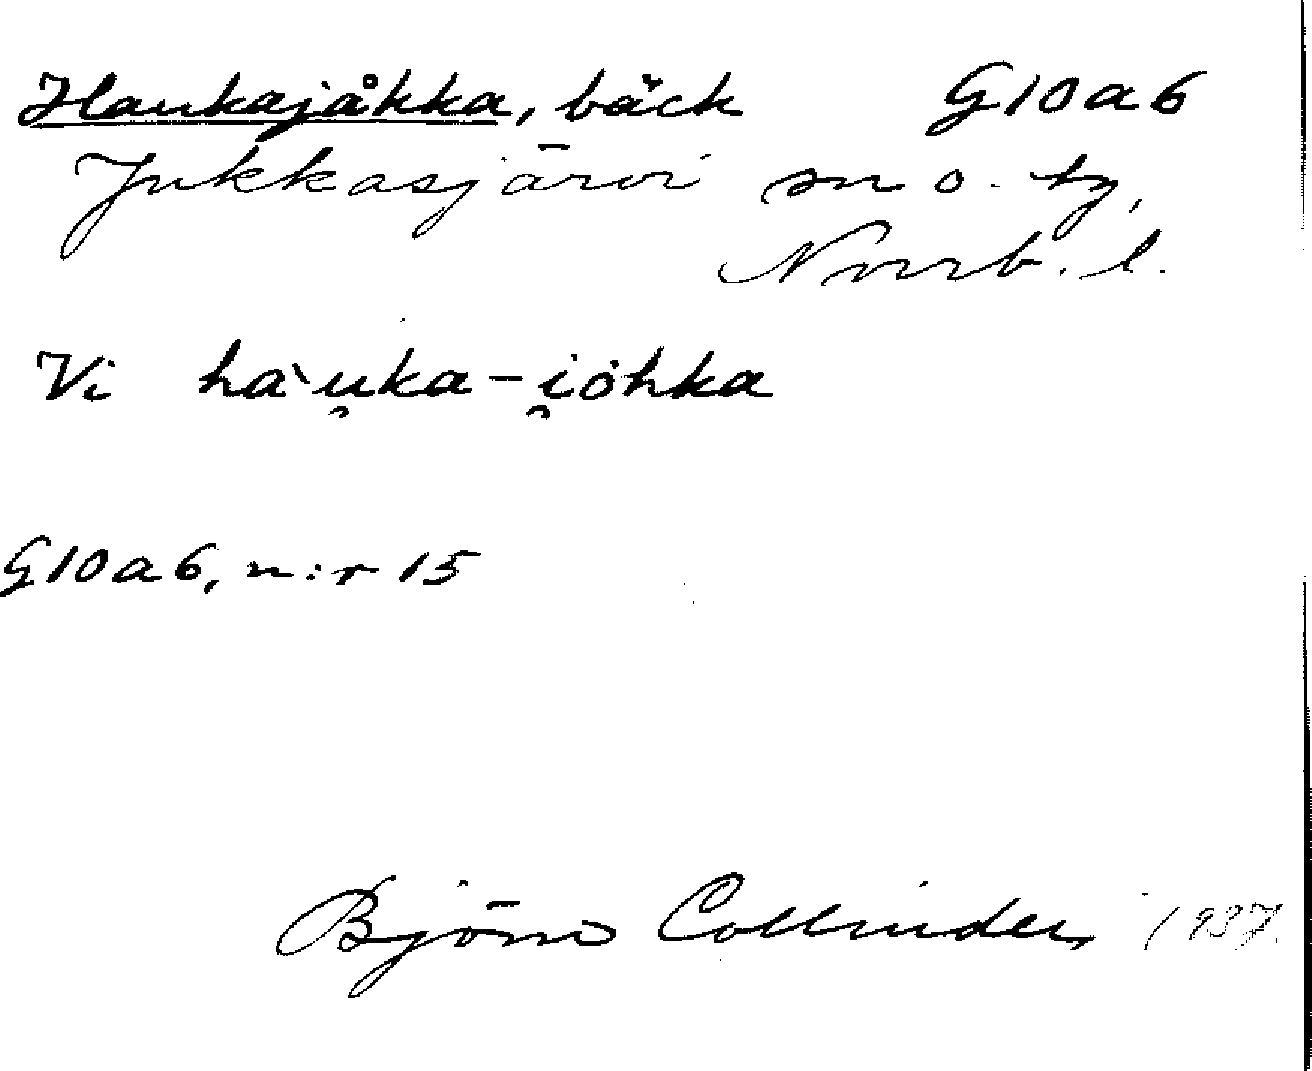 Haukajåkka, bäck G10a6
Jukkasjärvi sn o. tg,
Norrb. l.
Vi ha`u̯ka-i̯ȯhka
G10a6, n:r 15
Björn Collinder 1937.